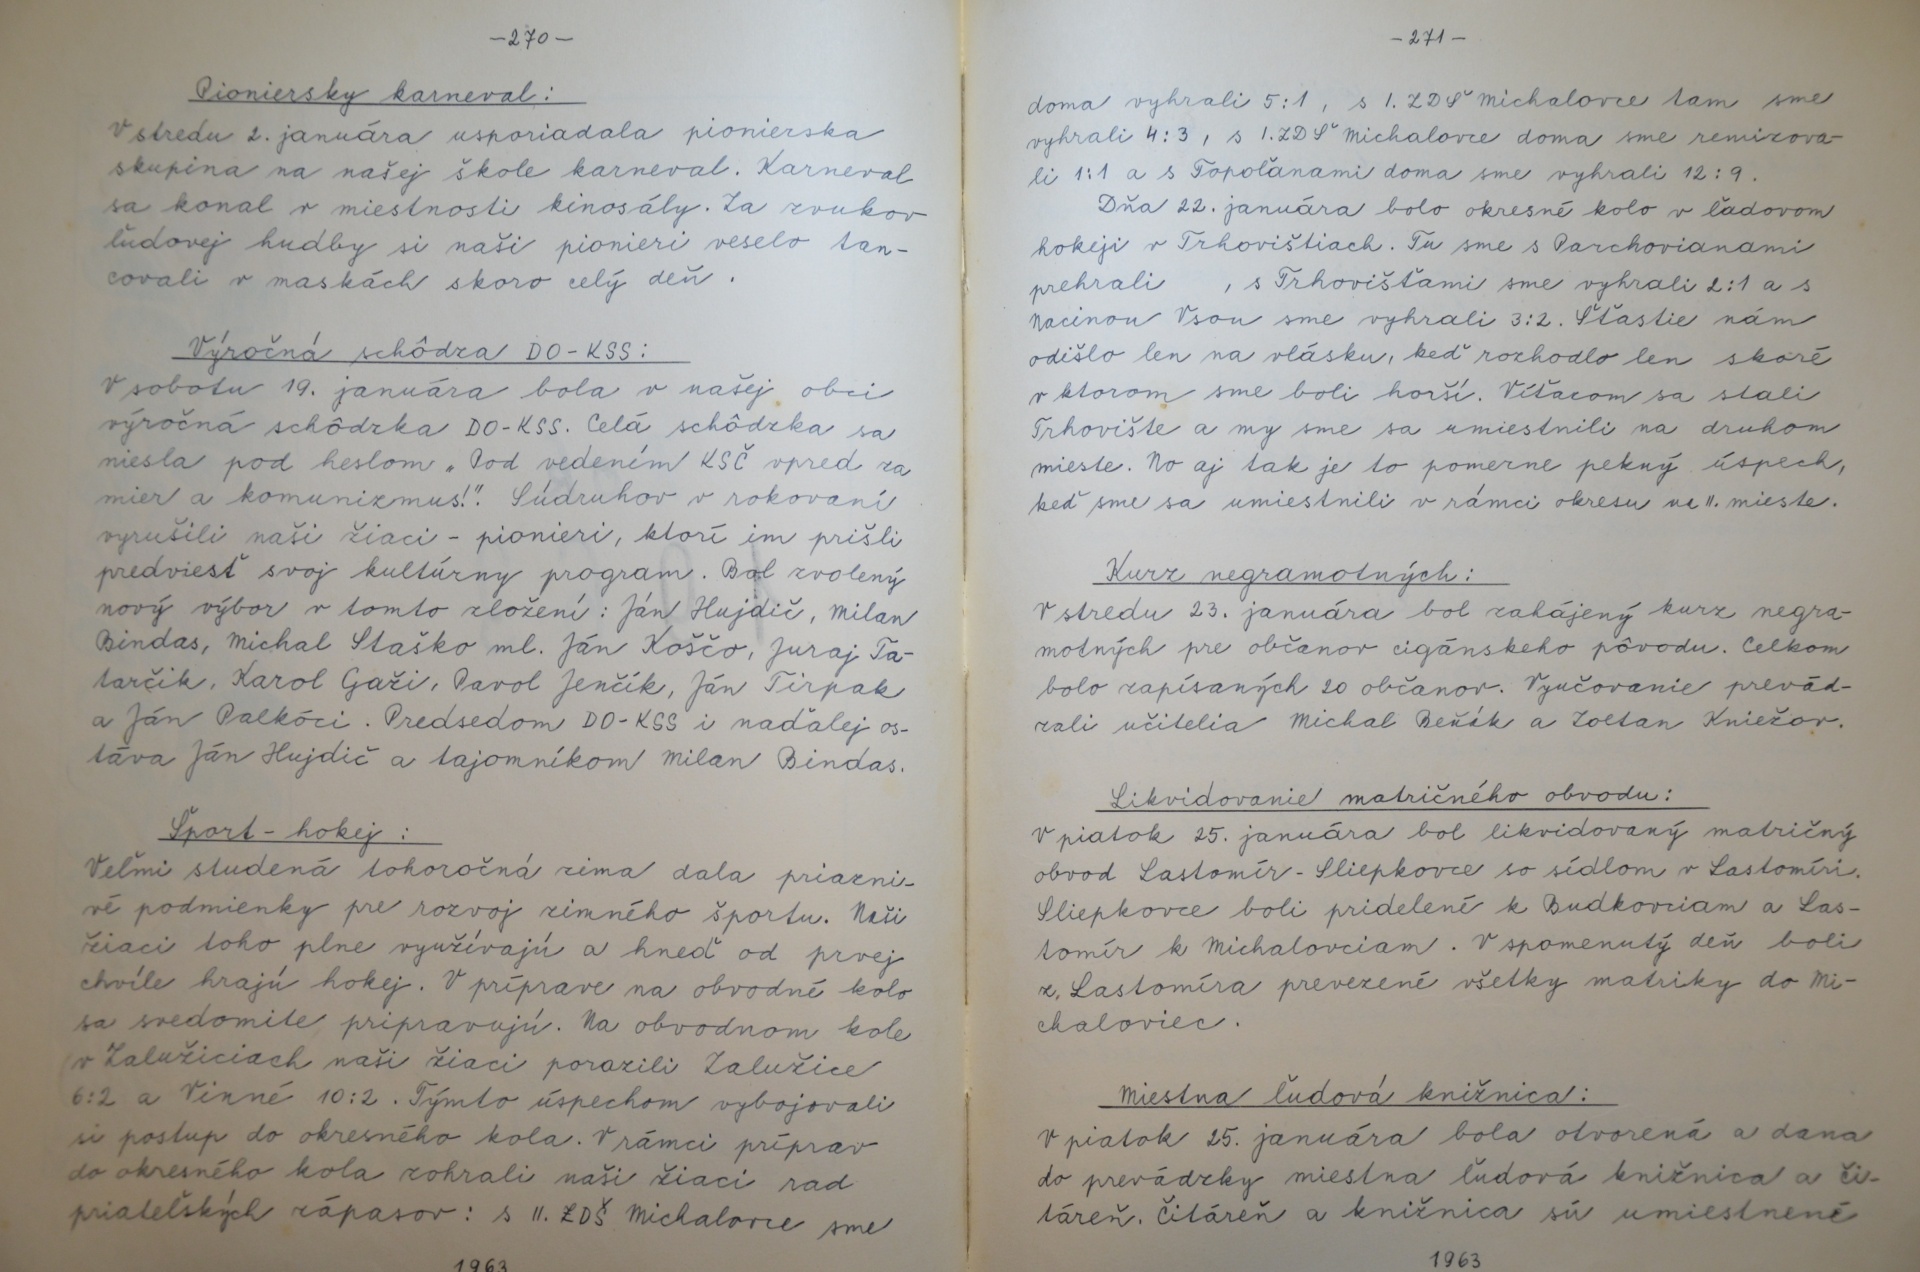 -270-
Pioniersky karneval:
V stredu 2. januára usporiadala pionierska
skupina na našej škole karneval. Karneval
sa konal v miestnosti kinosály. Za zvukov
ľudovej hudby si naši pionieri veselo tan-
covali v maskách skoro celý deň.
Výročná schôdza DO-KSS:
V sobotu 19. januára bola v našej obci
výročná schôdzka DO-KSS. Celá schôdzka sa
niesla pod heslom „Pod vedením KSČ vpred za
mier a komunizmus!". Súdruhov v rokovaní
vyrušili naši žiaci - pionieri, ktorí im prišli
predviesť svoj kultúrny program. Bol zvolený
nový výbor v tomto zložení: Ján Hujdič, Milan
Bindas, Michal Staško ml. Ján Koščo, Juraj Ta-
tarčik, Karol Gaži, Pavol Jenčík, Ján Tirpak
a Ján Palkóci. Predsedom DO-KSS i naďalej os-
táva Ján Hujdič a tajomníkom Milan Bindas.
Šport - hokej:
Veľmi studená tohoročná zima dala priazni-
vé podmienky pre rozvoj zimného športu. Naši
žiaci toho plne využívajú a hneď od prvej
chvíle hrajú hokej. V príprave na obvodné kolo
sa svedomite pripravujú. Na obvodnom kole
v Zalužiciach naši žiaci porazili Zalužice
6:2 a Vinné 10:2. Týmto úspechom vybojovali
si postup do okresného kola. V rámci príprav
do okresného kola zohrali naši žiaci rad
priateľských zápasov: s II. ZDŠ Michalovce sme
1963
-271-
doma vyhrali 5:1, s 1. ZDŠ Michalovce tam sme
vyhrali 4:3, s 1. ZDŠ Michalovce doma sme remizova-
li 1:1 a s Topoľanami doma sme vyhrali 12:9.
Dňa 22. januára bolo okresné kolo v ľadovom
hokeji v Trhovištiach. Tu sme s Parchovianami
prehrali , s Trhovišťami sme vyhrali 2:1 a s
Nacinou Vsou sme vyhrali 3:2. Šťastie nám
odišlo len na vlásku, keď rozhodlo len skoré
v ktorom sme boli horší. Víťazom sa stali
Trhovište a my sme sa umiestnili na druhom
mieste. No aj tak je to pomerne pekný úspech,
keď sme sa umiestnili v rámci okresu na II. mieste.
Kurz negramotných:
V stredu 23. januára bol zahájený kurz negra-
motných pre občanov cigánskeho pôvodu. Celkom
bolo zapísaných 20 občanov. Vyučovanie prevád-
zali učitelia Michal Beňák a Zoltan Kniežov.
Likvidovanie matričného obvodu:
V piatok 25. januára bol likvidovaný matričný
obvod Lastomír - Sliepkovce so sídlom v Lastomíri.
Sliepkovce boli pridelené k Budkovciam a Las-
tomír k Michalovciam. V spomenutý deň boli
z Lastomíra prevezené všetky matriky do Mi-
chaloviec.
Miestna ľudová knižnica:
V piatok 25. januára bola otvorená a dana
do prevádzky miestna ľudová knižnica a či-
táreň. Čitáreň a knižnica sú umiestnené
1963